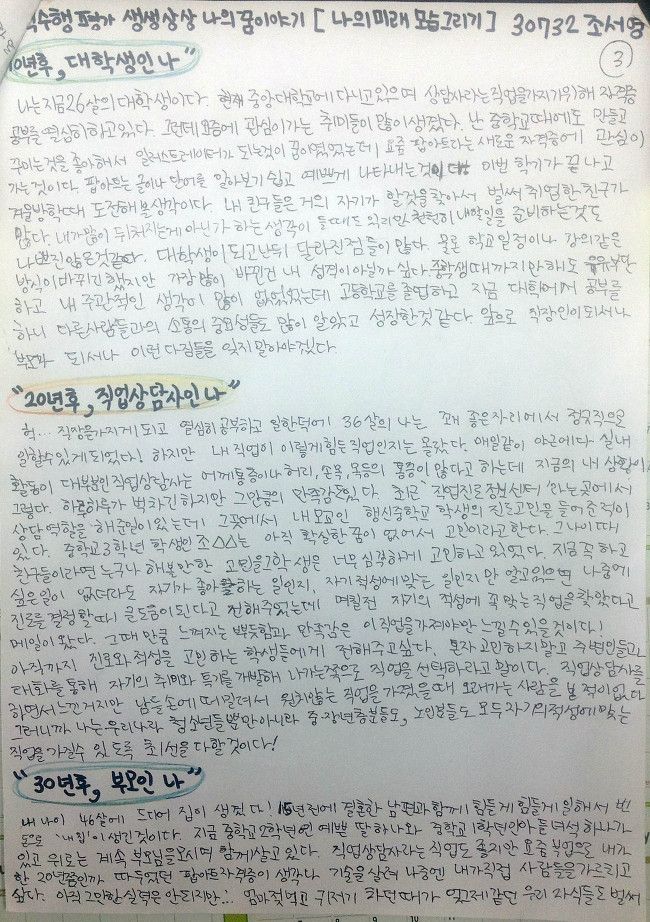 직수행평가 생생상상 나의 꿈이야기 [나의 미래 모습그리기] 30732 조서영
③
10년후, 대학생인 나"
나는 지금 26살의 대학생이다. 현재 중앙대학교에 다니고 있으며 상담사라는 직업을 가지기 위해 자격증
공부를 열심히 하고 있다. 그런데 요즘에 관심이 가는 취미들이 많이 생겼다. 난 중학교때에도 만들고
꾸미는것을 좋아해서 일러스트레이터가 되는것이 꿈이였었는데 요즘 팝아트라는 새로운 자격증에 관심이
가는 것이다. 팝아트는 글이나 단어를 알아보기 쉽고 예쁘게 나타내는것이다. 이번 학기가 끝나고
겨울방학때 도전해볼 생각이다. 내 친구들은 거의 자기가 할것을 찾아서 벌써 취업한 친구가
많다. 내가 많이 뒤쳐지는게 아닌가 하는 생각이 들때도 있지만 천천히 내 할일을 준비하는것도
나쁘진 않은것같다. 대학생이 되고난뒤 달라진점들이 많다. 물론 학교 일정이나 강의같은
방식이 바뀌긴 했지만 가장 많이 바뀐건 내 성격이 아닐까 싶다. 중학생때까지만해도 우유부단
하고 내 주관적인 생각이 많이 없었었는데 고등학교를 졸업하고 지금 대학에서 공부를
하니 다른사람들과의 소통의 중요성들도 많이 알았고 성장한것 같다. 앞으로 직장인이 되서나
부모가 되서나 이런 다짐들을 잊지 말아야겠다.
"20년후, 직업상담사인 나"
헉... 직장을 가지게 되고 열심히 공부하고 일한덕에 36살의 나는 꽤 좋은자리에서 정규직으로
일할수 있게 되었다. 하지만 내 직업이 이렇게 힘든 직업인지는 몰랐다. 매일같이 야근에다 실내
활동이 대부분인 직업상담사는 어깨통증이나 허리, 손목, 목등의 통증이 많다고 하는데 지금의 내 상황이
그렇다. 하루하루가 벅차긴 하지만 그만큼의 만족감은 있다. 최근 '직업진로정보센터'라는 곳에서
상담 역할을 해준일이 있는데 그곳에서 내 모교인 행신중학교 학생의 진로고민을 들어준적이
있다. 중학교 3학년 학생인 조△△는 아직 확실한 꿈이 없어서 고민이라고 한다. 그 나이때
친구들이라면 누구나 해볼만한 고민을 그 학생은 너무 심각하게 고민하고 있었다. 지금 꼭 하고
싶은일이 없더라도 자기가 좋아하는 일인지, 자기 적성에 맞는 일인지만 알고있으면 나중에
진로를 결정할때 큰 도움이 된다고 전해주었는데 며칠전 자기의 적성에 꼭 맞는 직업을 찾았다고
메일이 왔다. 그때만큼 느껴지는 뿌듯함과 만족감은 이 직업을 가져야만 느낄수 있을것이다!
아직까지 진로와 적성을 고민하는 학생들에게 전해주고싶다. 혼자 고민하지말고 주변인들과
대화를 통해 자기의 취미와 특기를 개발해 나가는쪽으로 직업을 선택하라고 말이다. 직업상담사를
하면서 느낀거지만 남들손에 떠밀려서 원치않는 직업을 가졌을때 오래가는 사람을 본 적이 없다
그러니까 나는 우리나라 청소년들뿐만아니라 중·장년층분들도, 노인분들도 모두 자기의 적성에 맞는
직업을 가질수 있도록 최선을 다할것이다!
"30년후, 부모인 나"
내 나이 46살에 드디어 집이 생겼다! 15년전에 결혼한 남편과 함께 힘들게 힘들게 일해서 번
돈으로 '내집'이 생긴것이다. 지금 중학교 2학년인 예쁜 딸 하나와 중학교 1학년인 아들 녀석 하나가
있고 위로는 계속 부모님을 모시며 함께 살고 있다. 직업상담사라는 직업도 좋지만 요즘 부업으로 내가
한 20년쯤인가 따두었던 팝아트자격증이 생각나 기술을 살려 나중엔 내가 직접 사람들을 가르치고
싶다. 아직 그만한 실력은 안되지만...! 엄마젖먹고 귀저기 차던때가 엊그제같던 우리 자식들도 벌써